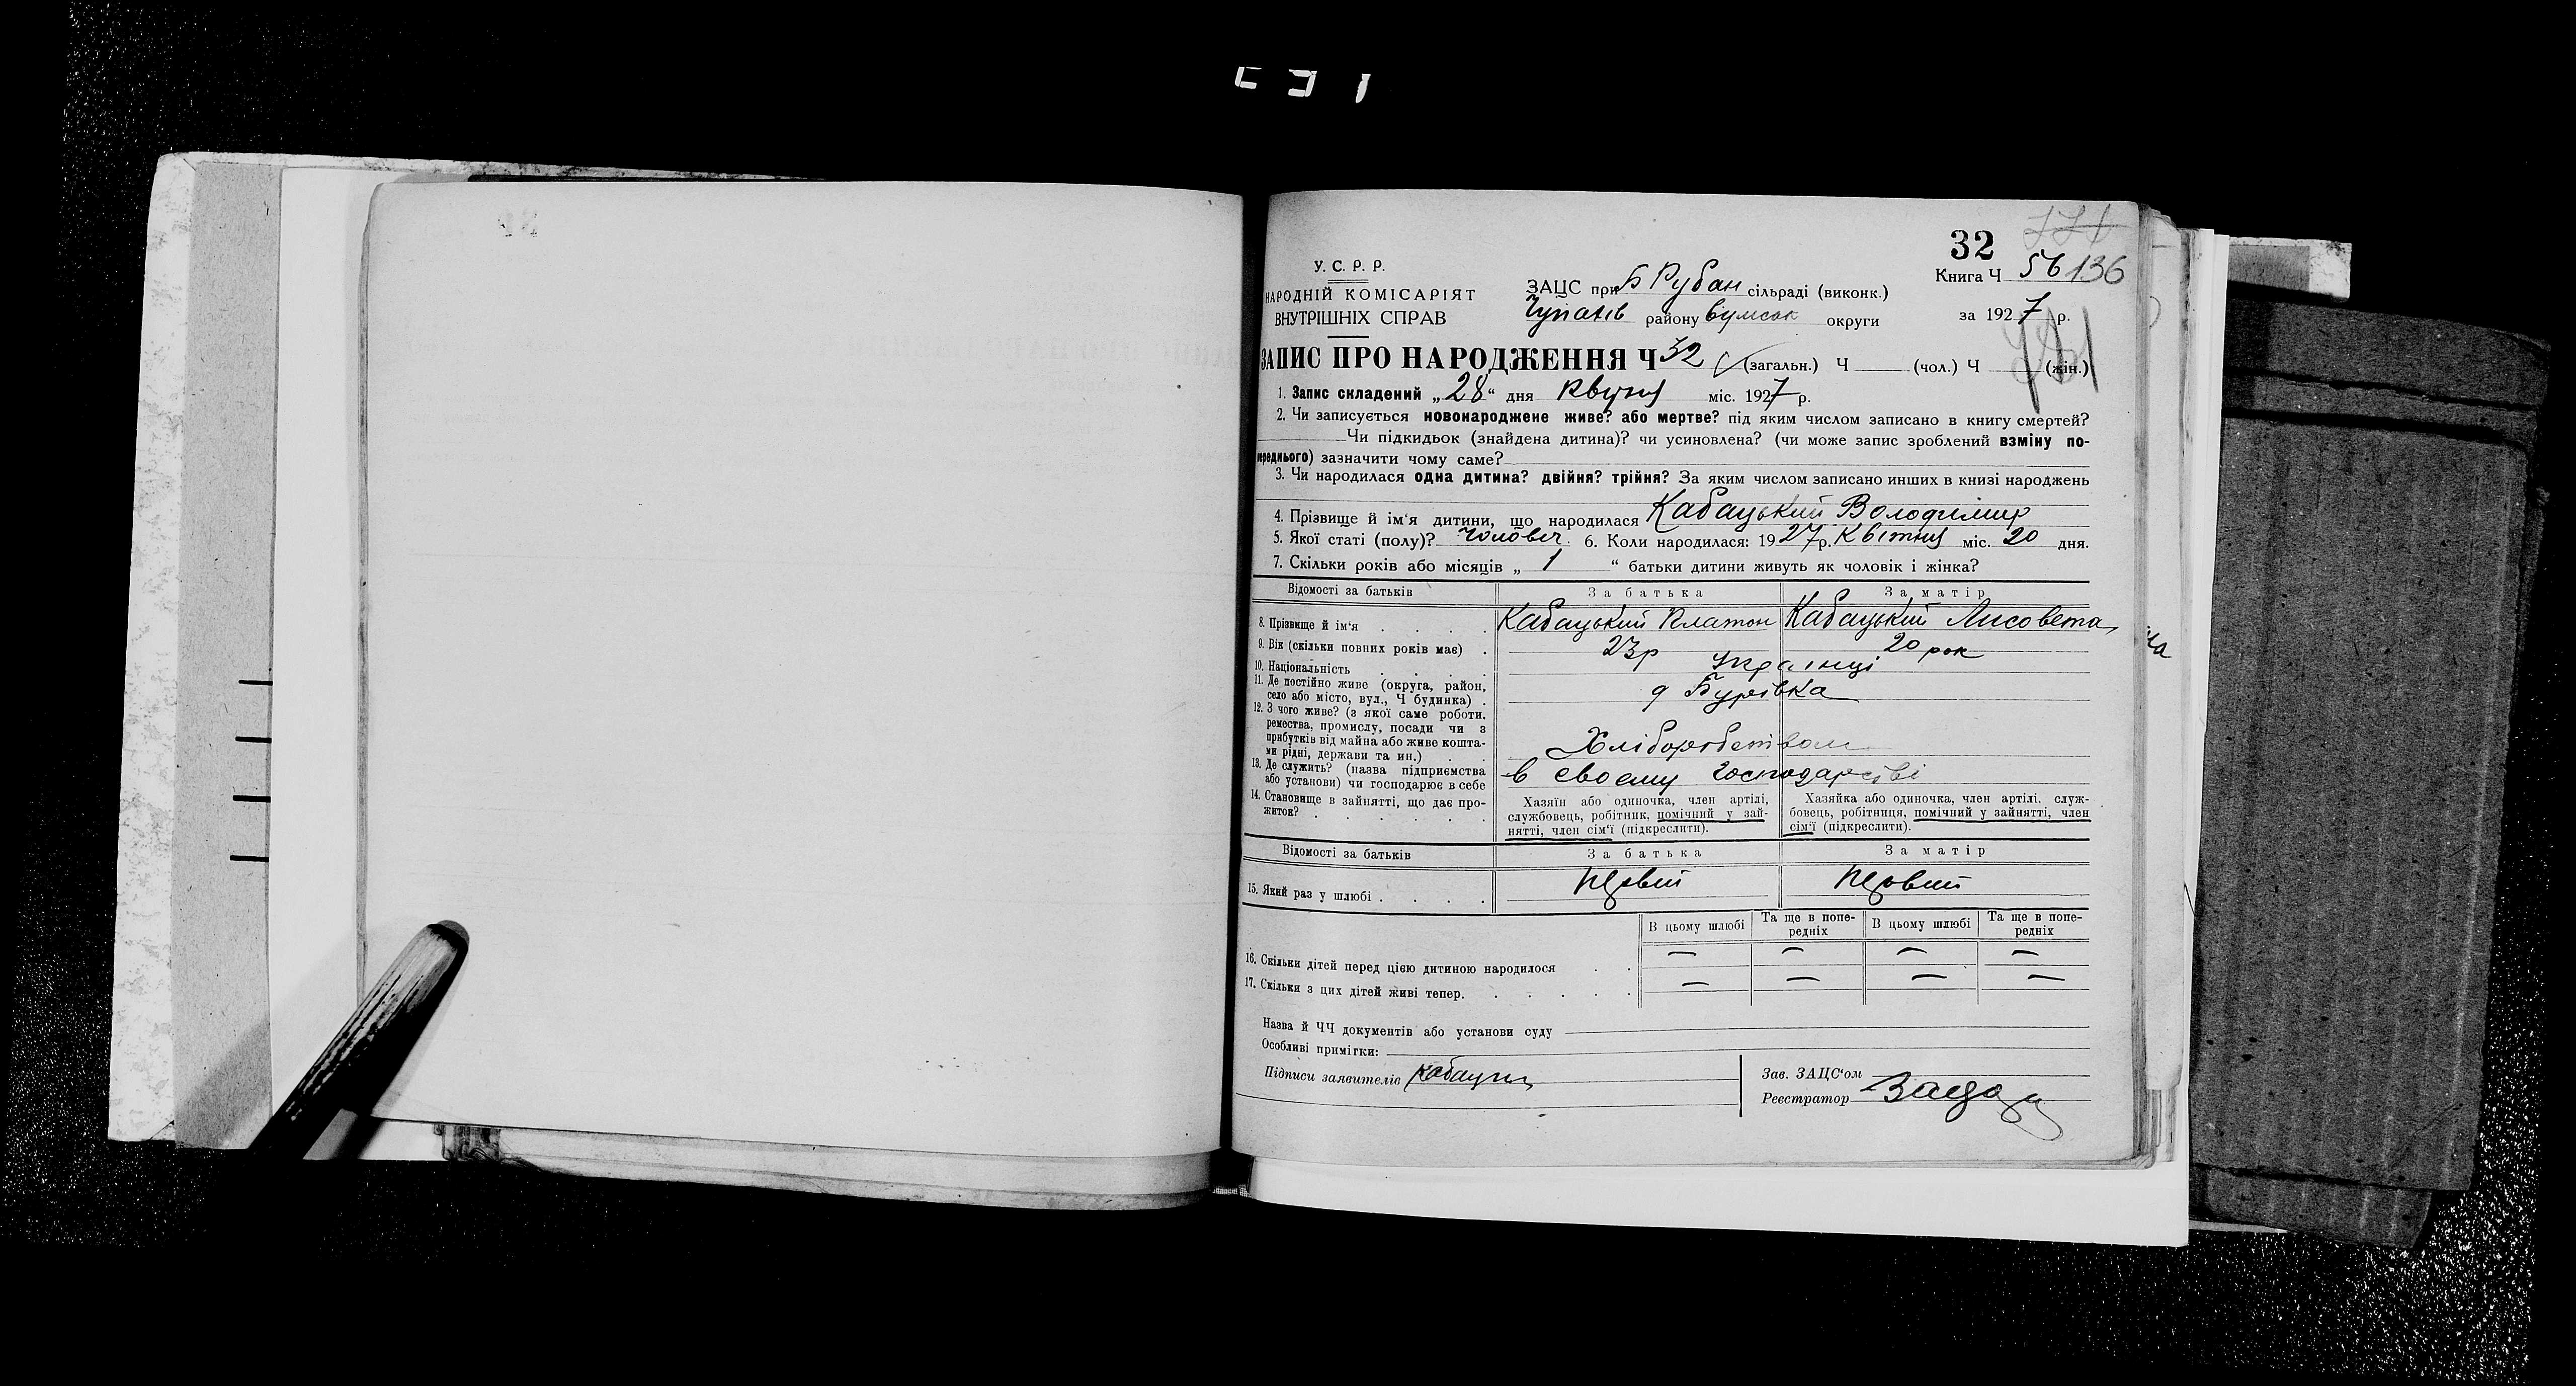 32
Книга Ч 56 136
У. С. Р. Р.
НАРОДНІЙ КОМІСАРІЯТ
ВНУТРІШНІХ СПРАВ
ЗАЦС при Б Рубан сільраді (виконк.)
району округи
за 1927 р.
ЗАПИС ПРО НАРОДЖЕННЯ Ч 32 (загальн.) Ч (чол.) Ч (жін.)
1. Запис складений „28" дня міс. 1927 р.
2. Чи записується новонароджене живе? або мертве? під яким числом записано в книгу смертей?
Чи підкидьок (знайдена дитина)? чи усиновлена? (чи може запис зроблений взміну по-
переднього) зазначити чому саме?
3. Чи народилася одна дитина? двійня? трійня? За яким числом записано инших в книзі народжень
4. Прізвище й ім'я дитини, що народилася Кабацький Володимир
5. Якої статі (полу)? чоловіч. 6. Коли народилася: 1927 р. Квітня міс. 20 дня.
7. Скільки років або місяців „ 1 " батьки дитини живуть як чоловік і жінка?
Відомості за батьків За батька За матір
8. Прізвище й ім'я Кабацький Платон Кабацький Лисовета
9. Вік (скільки повних років має) 23р 20 рок
10. Національність Українці
11. Де постійно живе (округа, район,
село або місто, вул., Ч будинка) . Бурівка
12. З чого живе? (з якої саме роботи,
ремества, промислу, посади чи з
прибутків від майна або живе кошта-
ми рідні, держави та ин.) Хліборобством
13. Де служить? (назва підприємства
або установи) чи господарює в себе в своему господарстві
14. Становище в зайнятті, що дає про-
житок?
Хазяїн або одиночка, член артілі,
службовець, робітник, помічний у зай-
нятті, член сім'ї (підкреслити).
Хазяйка або одиночка, член артілі, служ-
бовець, робітниця, помічний у зайнятті, член
сім'ї (підкреслити).
Відомості за батьків За батька За матір
15. Який раз у шлюбі . . . . Первий Первий
В цьому шлюбі Та ще в попе-
редніх В цьому шлюбі Та ще в попе-
редніх
16. Скільки дітей перед цією дитиною народилося . . — — — —
17. Скільки з цих дітей живі тепер. . . . . . — — — —
Назва й ЧЧ документів або установи суду
Особливі примітки:
Підписи заявителів
Зав. ЗАЦС'ом
Реєстратор